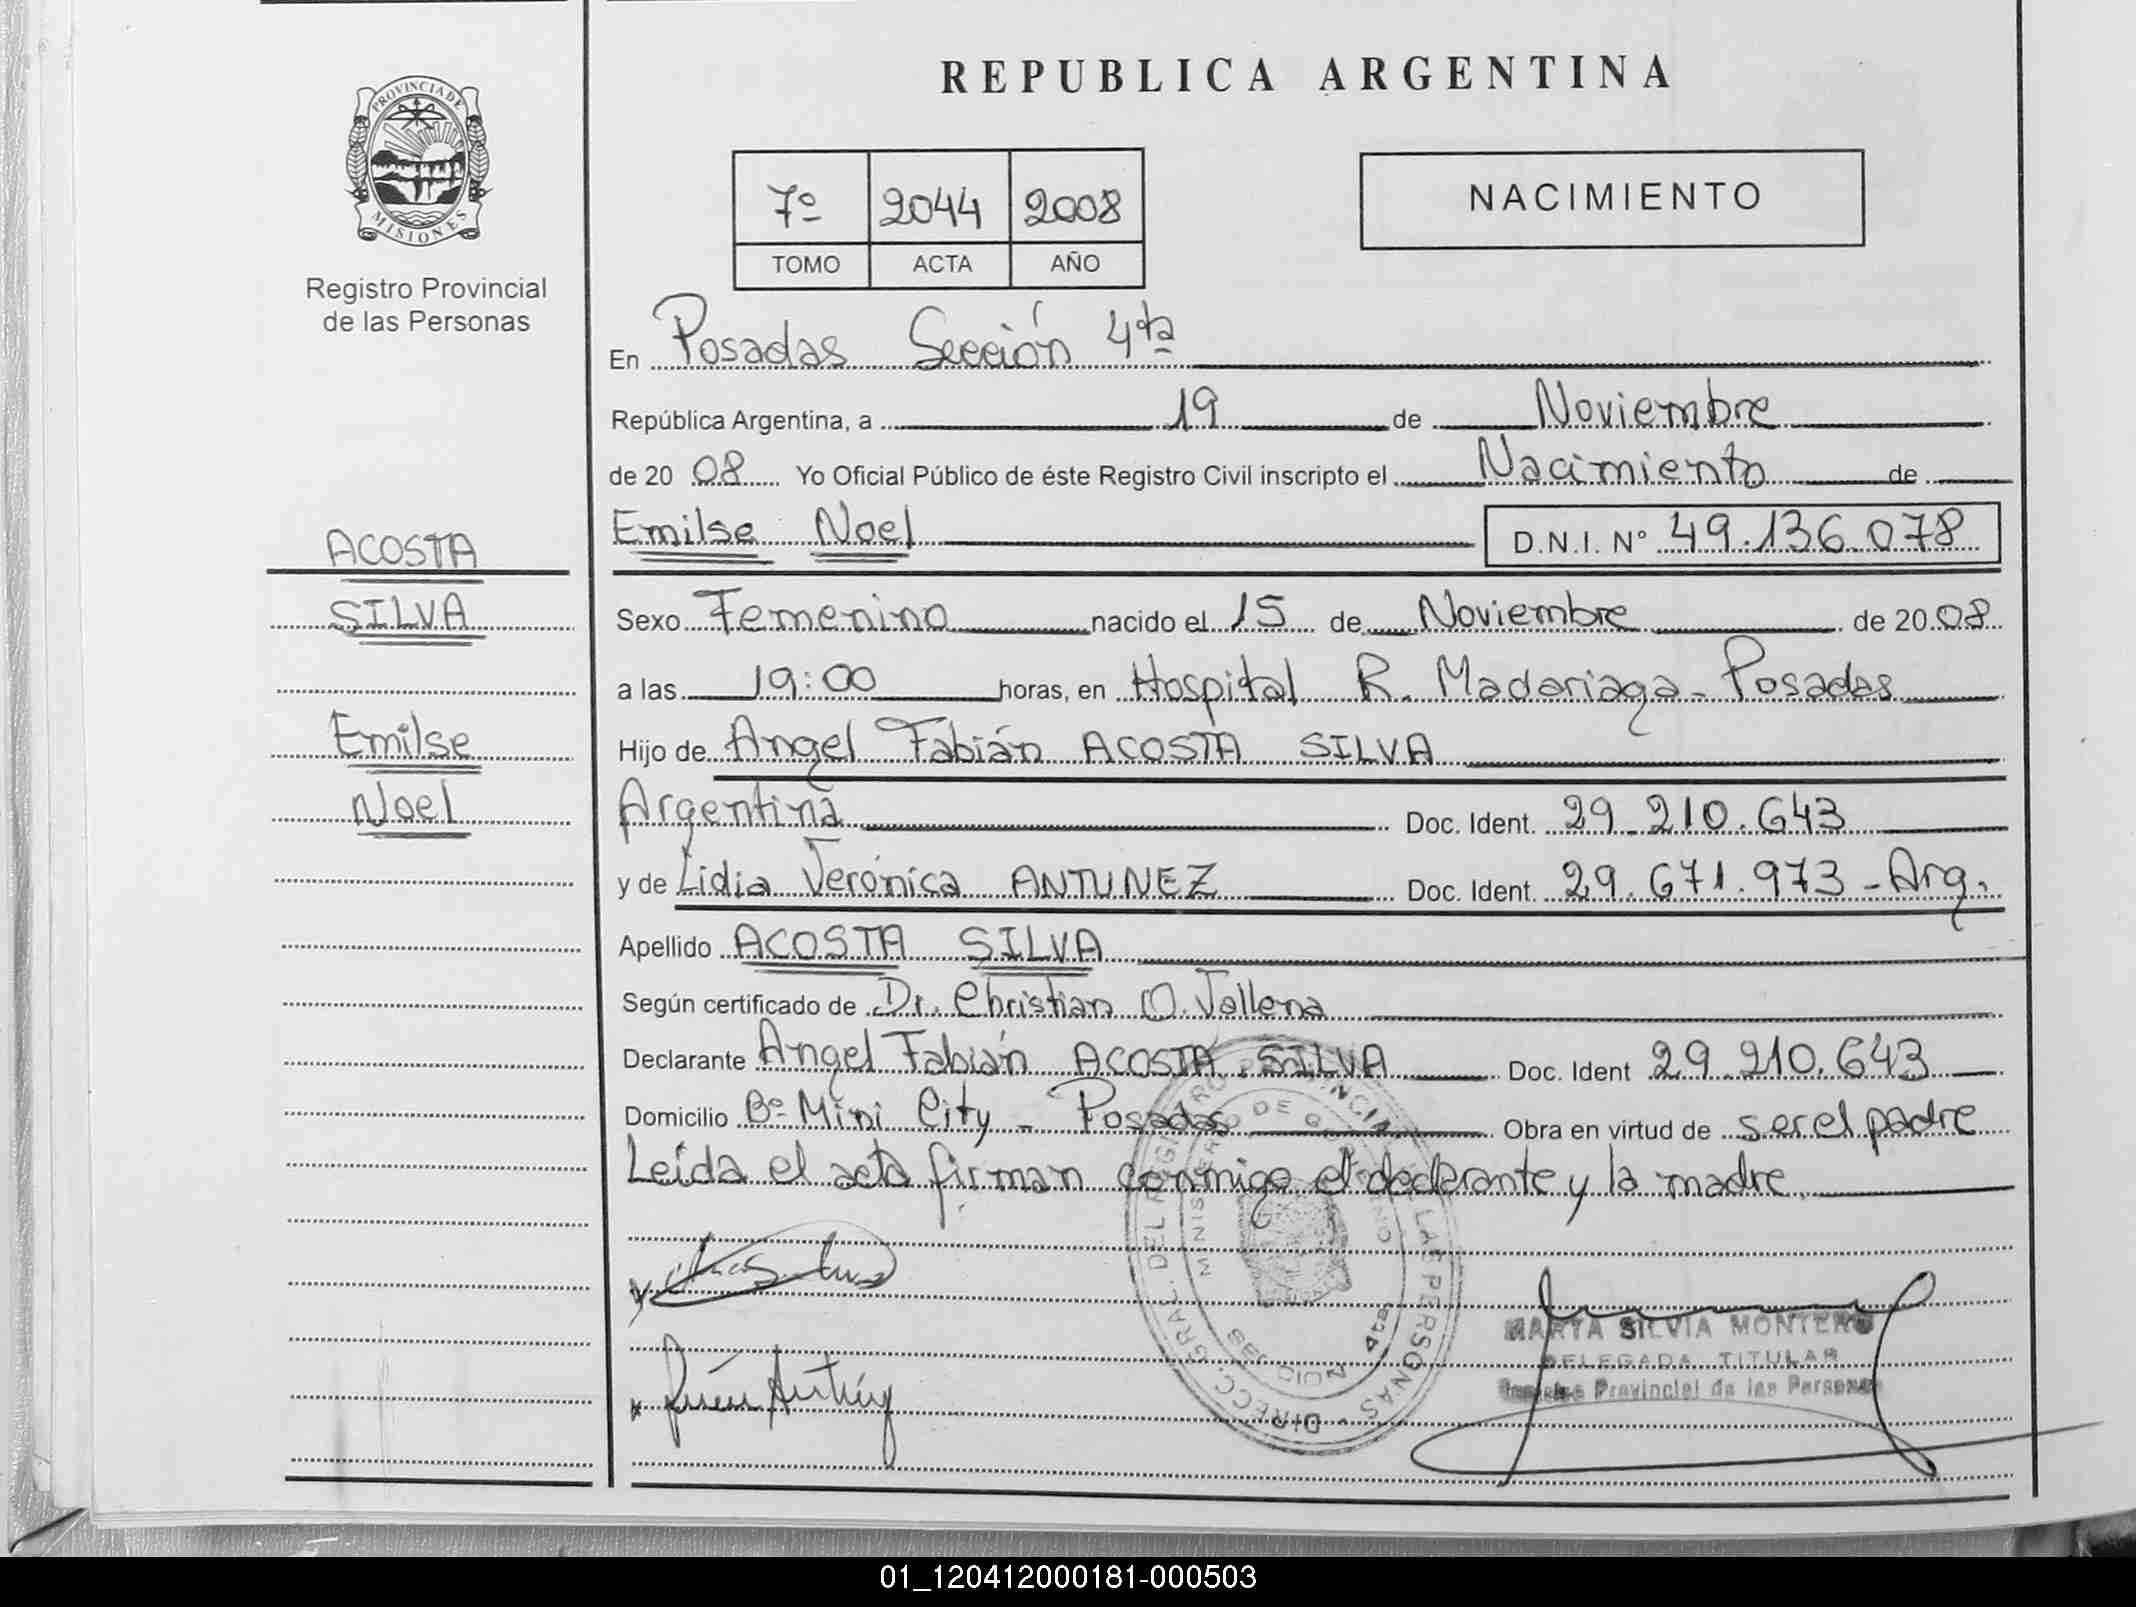 REPUBLICA ARGENTINA
PROVINCIA DE
MISIONES
Registro Provincial
de las Personas
7º 2044 2008
TOMO ACTA AÑO
NACIMIENTO
En Posadas Sección 4ta
República Argentina, a 19 de Noviembre
de 20 08 Yo Oficial Público de éste Registro Civil inscripto el Nacimiento de
Emilse Noel D.N.I. Nº 49.136.078
ACOSTA
SILVA
Emilse
Noel
Sexo Femenino nacido el 15 de Noviembre de 20 08
a las 19:00 horas, en Hospital R. Madariaga - Posadas
Hijo de Angel Fabián ACOSTA SILVA
Argentina Doc. Ident. 29.210.643
y de Lidia Verónica ANTUNEZ Doc. Ident. 29.671.973 - Arg.
Apellido ACOSTA SILVA
Según certificado de Dr. Christian O. Vallena
Declarante Angel Fabián ACOSTA SILVA Doc. Ident 29.210.643
Domicilio Bº Mini City - Posadas Obra en virtud de ser el padre
Leída el acta firman conmigo el declarante y la madre.
DIRECC. GRAL. DEL REGISTRO PROVINCIAL DE LAS PERSONAS
MINISTERIO DE GOBIERNO
SECCION 4ta
MARTA SILVIA MONTERO
DELEGADA TITULAR
Provincial de las Personas
01_120412000181-000503